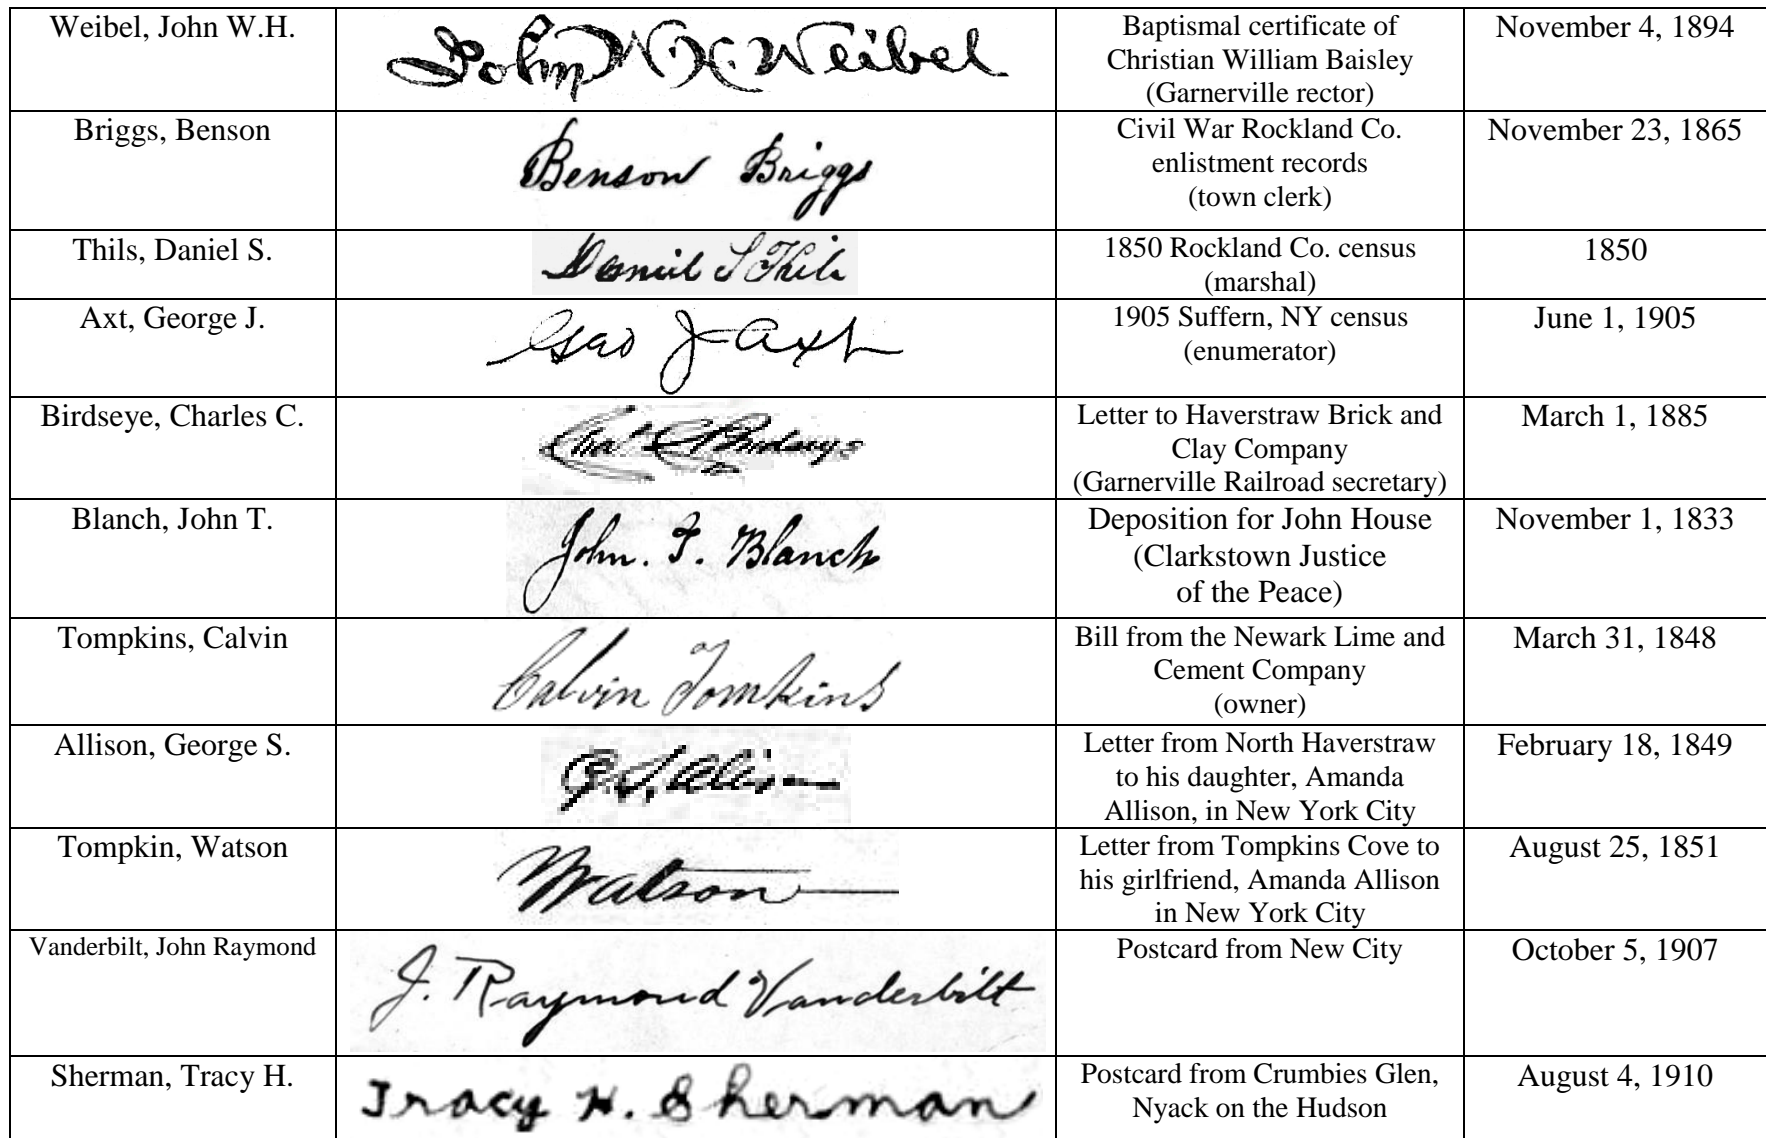 Weibel, John W.H.
John W.H. Weibel
Baptismal certificate of
Christian William Baisley
(Garnerville rector)
November 4, 1894
Briggs, Benson
Benson Briggs
Civil War Rockland Co.
enlistment records
(town clerk)
November 23, 1865
Thils, Daniel S.
Daniel S Thils
1850 Rockland Co. census
(marshal)
1850
Axt, George J.
Geo J Axt
1905 Suffern, NY census
(enumerator)
June 1, 1905
Birdseye, Charles C.
Chas C Birdseye
Letter to Haverstraw Brick and
Clay Company
(Garnerville Railroad secretary)
March 1, 1885
Blanch, John T.
John. T. Blanch
Deposition for John House
(Clarkstown Justice
of the Peace)
November 1, 1833
Tompkins, Calvin
Calvin Tomkins
Bill from the Newark Lime and
Cement Company
(owner)
March 31, 1848
Allison, George S.
G. S. Allison
Letter from North Haverstraw
to his daughter, Amanda
Allison, in New York City
February 18, 1849
Tompkin, Watson
Watson
Letter from Tompkins Cove to
his girlfriend, Amanda Allison
in New York City
August 25, 1851
Vanderbilt, John Raymond
J. Raymond Vanderbilt
Postcard from New City
October 5, 1907
Sherman, Tracy H.
Tracy H. Sherman
Postcard from Crumbies Glen,
Nyack on the Hudson
August 4, 1910